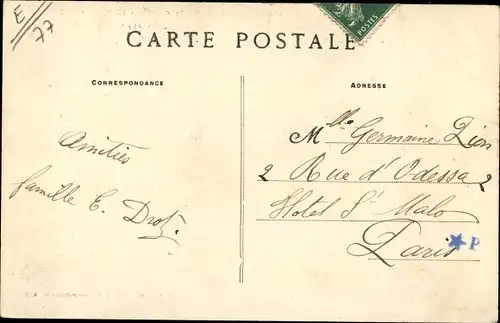 E/77
POSTES
CARTE POSTALE
CORRESPONDANCE
Amitiés
famille E. Droz.
ADRESSE
Mlle Germaine Lion
2 Rue d'Odessa 2
Hotel St Malo
Paris
P